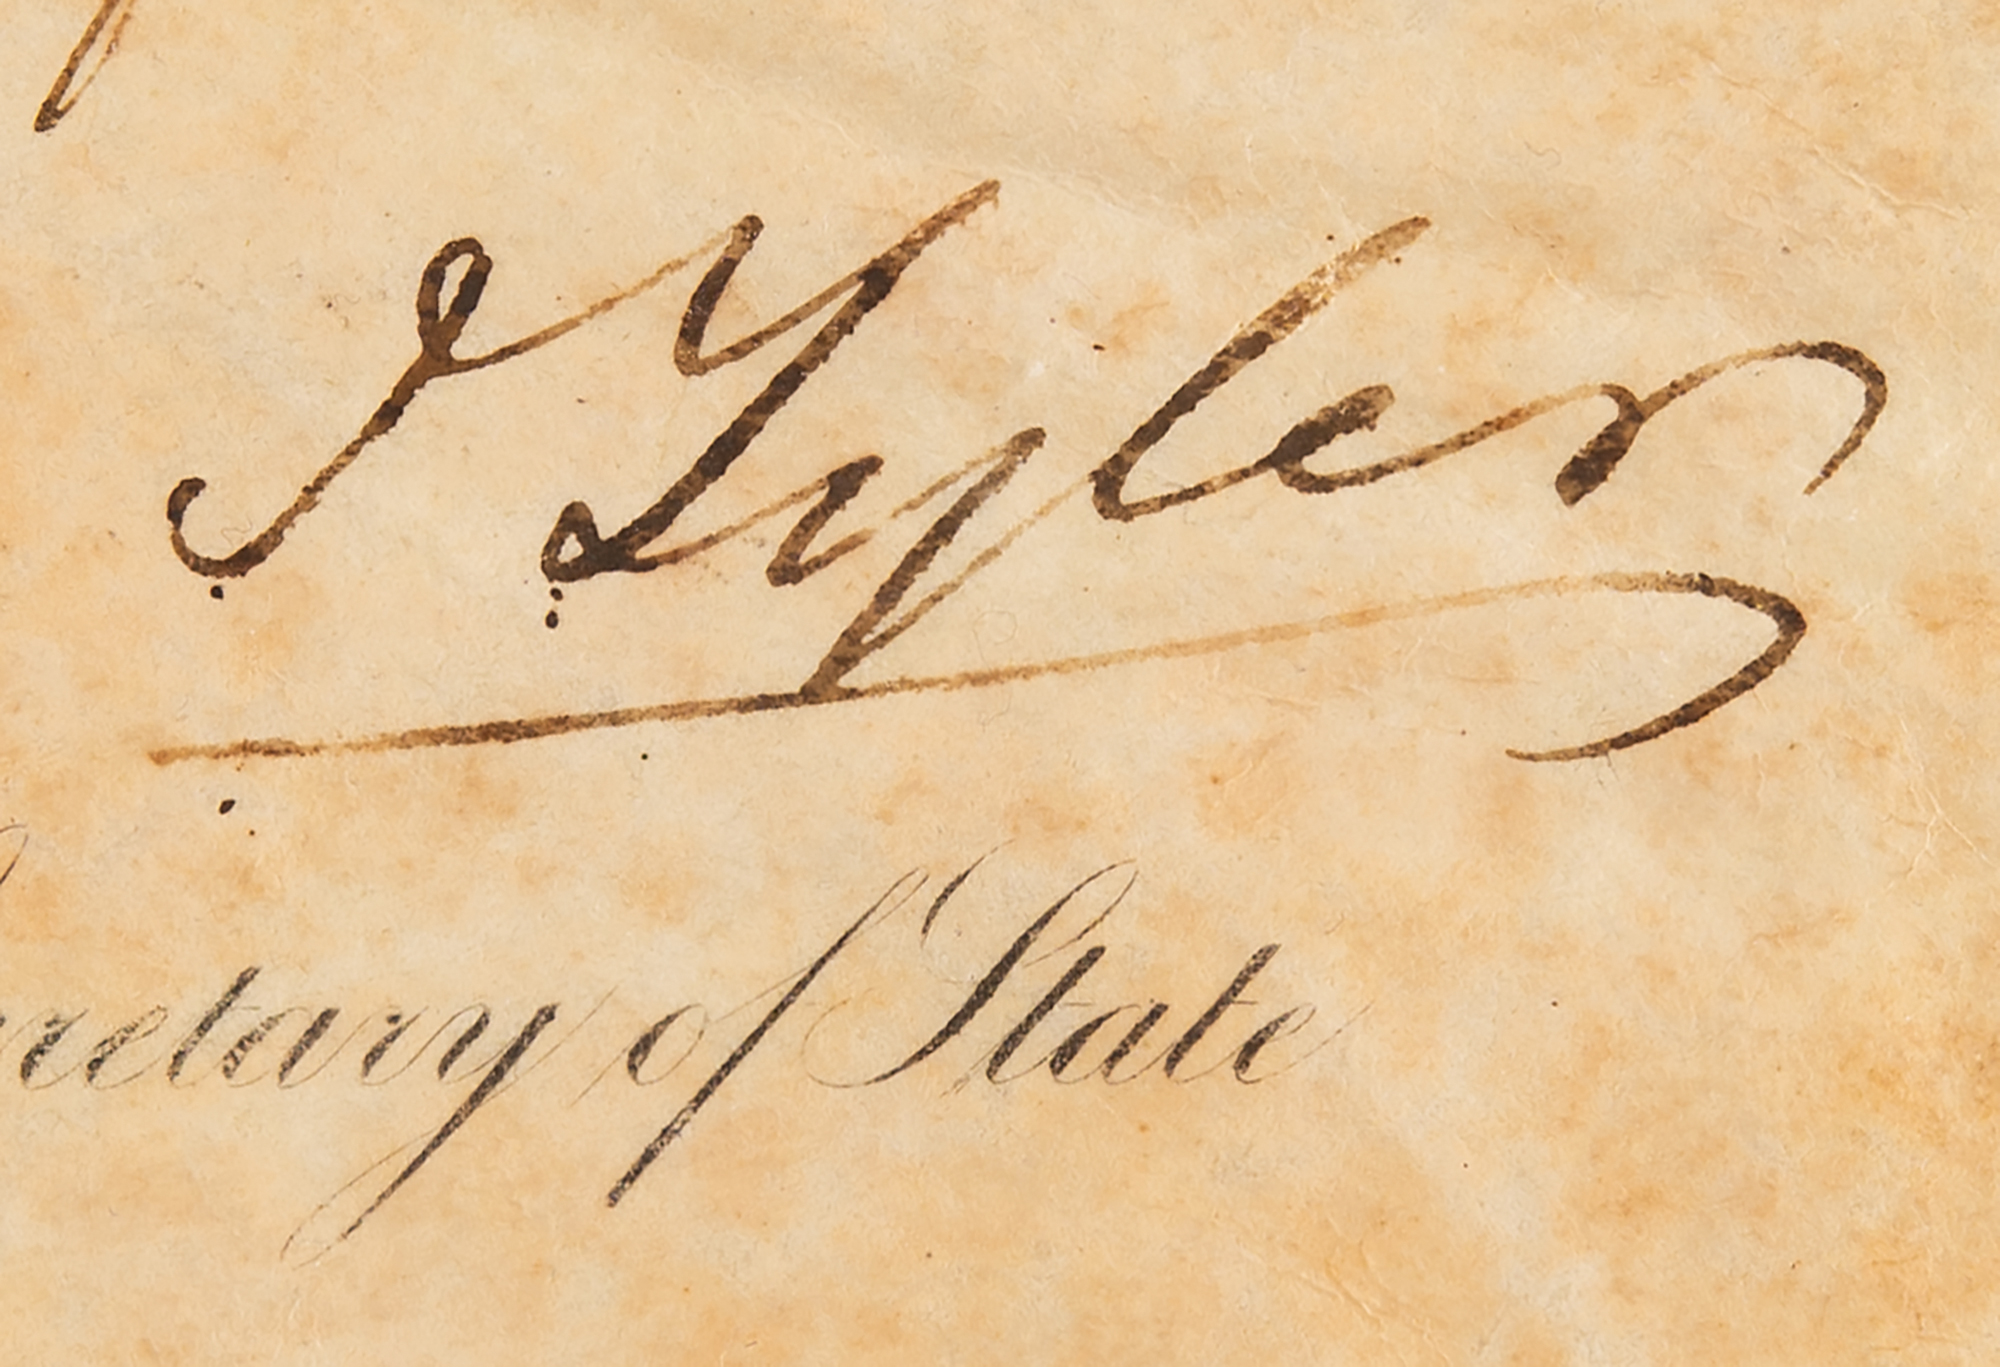 J Tyler
retary of State